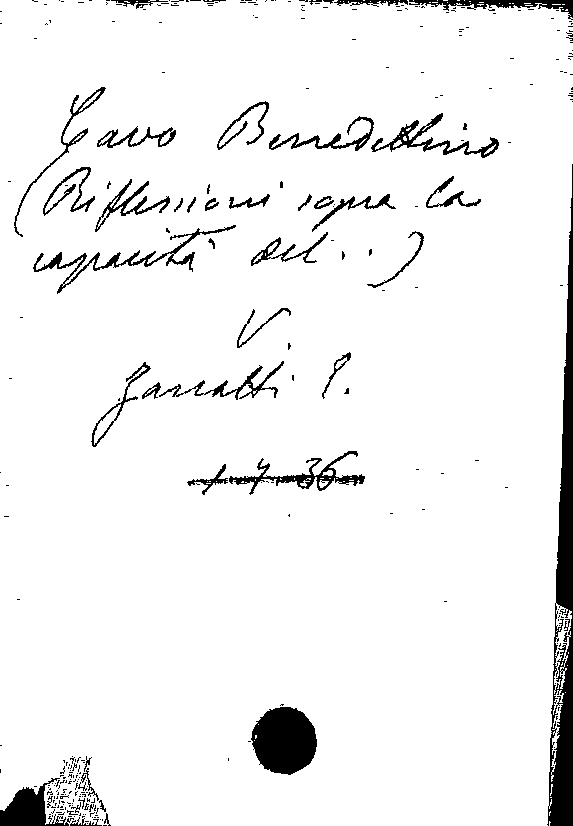 Cavo Benedettino
(Riflessioni sopra la
capacità del . . )
V.
Zanotti E.
1 7 36